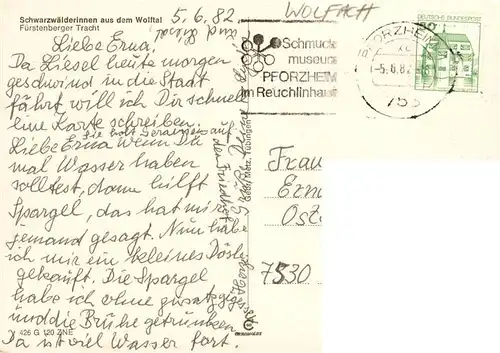 Schwarzwälderinnen aus dem Wolftal
Fürstenberger Tracht
5.6.82
Liebe Erna,
Da Liesel heute morgen
geschwind in die Stadt
fährt will ich Dir schnell
eine Karte schreiben.
Sie holt Geranien auf
den Friedhof
Liebe Erna wenn Du
mal Wasser haben
solltest, dann hilft
Spargel, das hat mir
jemand gesagt. Nun habe
ich mir ein kleines Dösle
gekauft. Die Spargel
habe ich ohne zusatz gegessen
und die Brühe getrunken.
Da ist viel Wasser fort.
426 G 120 ZNE
Gebr. Metz, Tübingen
WOLFACH
Schmuck
museum
PFORZHEIM
im Reuchlinhaus
PFORZHEIM
-5.6.82
753
DEUTSCHE BUNDESPOST
Frau
Erna
7530